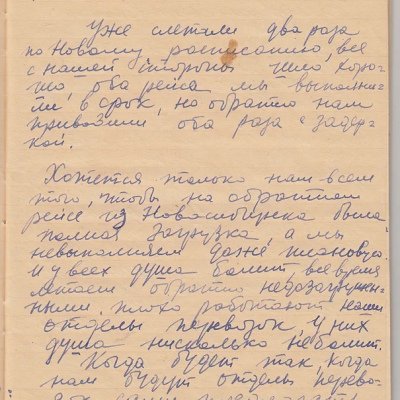 Уже слетали два раза
по Новому расписанию, всё
с нашей стороны шло хоро-
шо, оба рейса мы выполни-
ли в срок, но обратно нам
привозили оба раза с задер-
кой.
Хотется только нам всем
того, чтобы на обратном
рейсе из Новосибирска была
полная загрузка, а мы
невыполняем даже плановую.
И у всех душа болит, всё время
летаем обратно недозагружен-
ными, плохо работают наши
отделы перевозок, у них
душа нисколько не болит.
Когда будет так, когда
нам будут отделы перево-